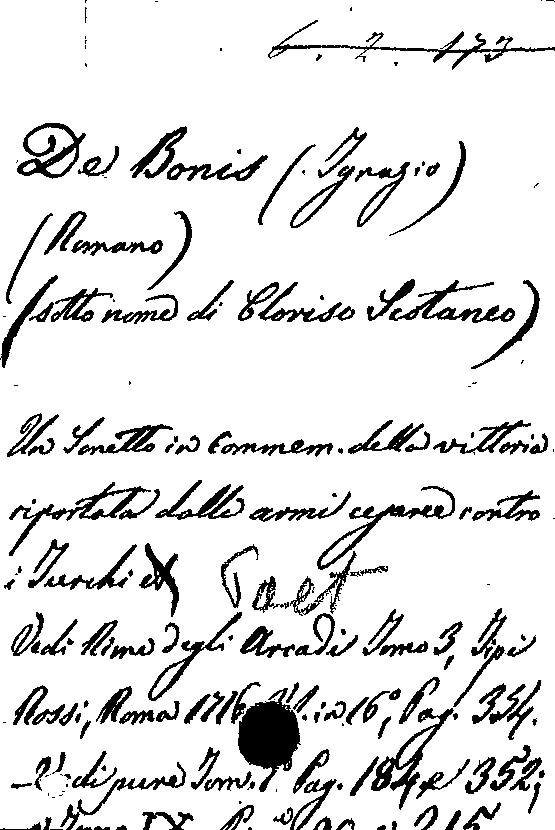 6. 2. 173
De Bonis (Ignazio)
(Romano)
(sotto nome di Cloriso Scotaneo)
Un Sonetto in commem. della vittoria
riportata dalle armi cesaree contro
i Turchi Poet
Vedi Rime degli Arcadi Tomo 3, Tipi
Rossi, Roma 1716 in 16°, Pag. 354.
– Vedi pure Tom. 1° Pag. 184 e 352;
e Tomo IX. 215